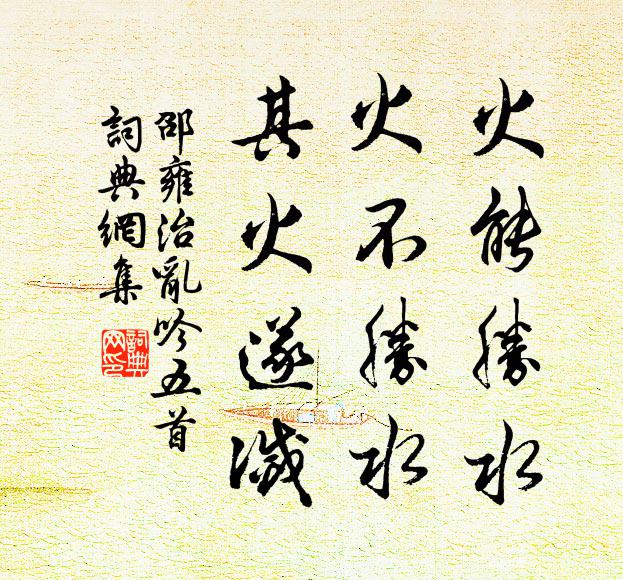 火能勝水
火不勝水
其火遂滅
邵雍治亂吟五首
詞典網集
詞典
網印